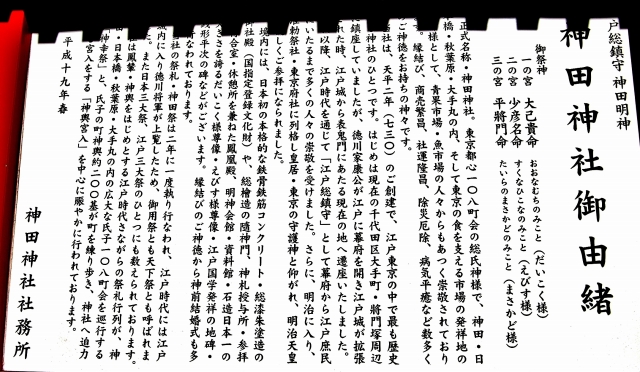 戸総鎮守 神田明神
神田神社御由緒
御祭神
一の宮 大己貴命 おおなむちのみこと(だいこく様)
二の宮 少彦名命 すくなひこなのみこと(えびす様)
三の宮 平將門命 たいらのまさかどのみこと(まさかど様)
正式名称・神田神社。東京都心一〇八町会の総氏神様で、神田・日
橋・秋葉原・大手丸の内、そして東京の食を支える市場の発祥地の
様として、青果市場・魚市場の人々からもあつく崇敬されており
す。縁結び、商売繁昌、社運隆昌、除災厄除、病気平癒など数多く
ご神徳をお持ちの神々です。
社は、天平二年(七三〇)のご創建で、江戸東京の中で最も歴史
神社のひとつです。はじめは現在の千代田区大手町・將門塚周辺
鎮座していましたが、徳川家康公が江戸に幕府を開き江戸城が拡張
れた時、江戸城から表鬼門にあたる現在の地へ遷座いたしました。
以降、江戸時代を通じて「江戸総鎮守」として幕府から江戸庶民
いたるまで多くの人々の崇敬を受けました。さらに、明治に入り、
勅祭社・東京府社に列格し皇居・東京の守護神と仰がれ、明治天皇
しくご参拝になられました。
境内には、日本初の本格的な鉄骨鉄筋コンクリート・総漆朱塗造の
社殿(国指定登録文化財)や、総檜造の随神門、神札授与所・参拝
合室・休憩所を兼ねた鳳凰殿、明神会館・資料館・石造日本一の
きさを誇るだいこく様尊像・えびす様尊像・江戸国学発祥の地碑・
形平次の碑などがございます。縁結びのご神徳から神前結婚式も多
なわれております。
社の祭礼・神田祭は二年に一度執り行なわれ、江戸時代には江戸
城内に入り徳川将軍が上覧したため、御用祭とも天下祭とも呼ばれま
。また日本三大祭、江戸三大祭のひとつにも数えられております。
は鳳輦・神輿をはじめとする江戸時代さながらの祭礼行列が、神
・日本橋・秋葉原・大手丸の内の広大な氏子一〇八町会を巡行する
神幸祭」と、氏子の町神輿約二〇〇基が町を練り歩き、神社へ迫力
宮入をする「神輿宮入」を中心に賑やかに行われております。
平成十九年春
神田神社社務所